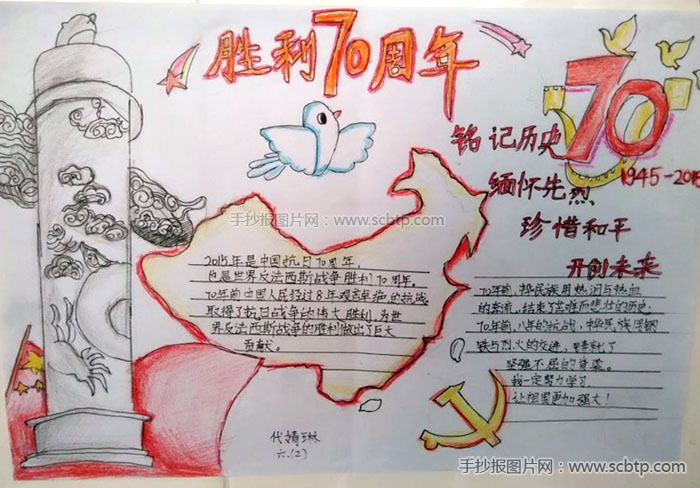 胜利70周年
70
1945-2015
铭记历史
缅怀先烈
珍惜和平
开创未来
手抄报图片网:www.scbtp.com
2015年是中国抗日70周年。
也是世界反法西斯战争胜利70周年。
70年前中国人民经过8年艰苦卓绝的抗战
取得了抗日战争的伟大胜利,为世
界反法西斯战争的胜利做出了巨大
贡献。
70年前,中华民族用热泪与热血
的交流,结束了苦难而悲壮的历史
70年前,八年的抗战,中华民族因钢
铁与烈火的交迸,铸就了
坚强不屈的脊梁。
我一定努力学习
让祖国更加强大!
代婧琳
六.(2)
手抄报图片网:www.scbtp.com